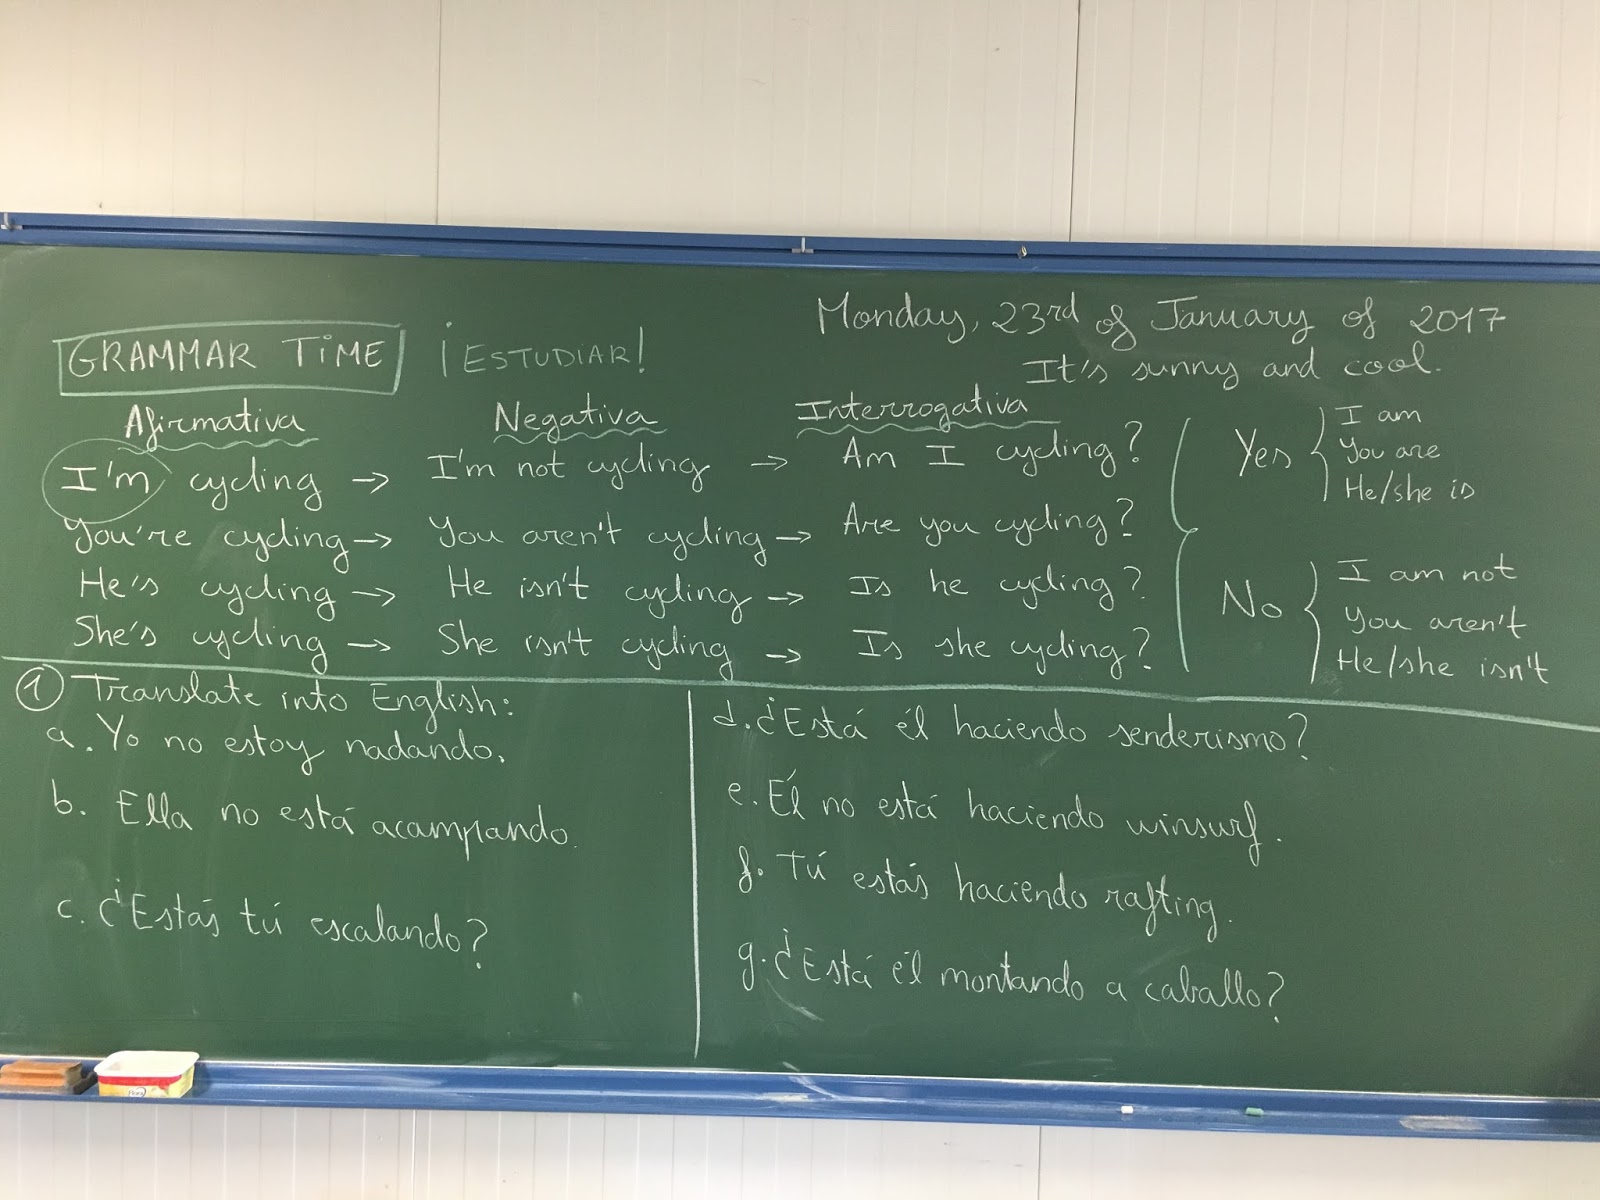 Monday, 23rd of January of 2017
GRAMMAR TIME ¡ESTUDIAR!
It's sunny and cool.
Afirmativa Negativa Interrogativa
I'm cycling → I'm not cycling → Am I cycling?
You're cycling → You aren't cycling → Are you cycling?
He's cycling → He isn't cycling → Is he cycling?
She's cycling → She isn't cycling → Is she cycling?
Yes
I am
You are
He/she is
No
I am not
You aren't
He/she isn't
1 Translate into English:
a. Yo no estoy nadando.
b. Ella no está acampando.
c. ¿Estás tú escalando?
d. ¿Está él haciendo senderismo?
e. Él no está haciendo winsurf.
f. Tú estás haciendo rafting.
g. ¿Está él montando a caballo?